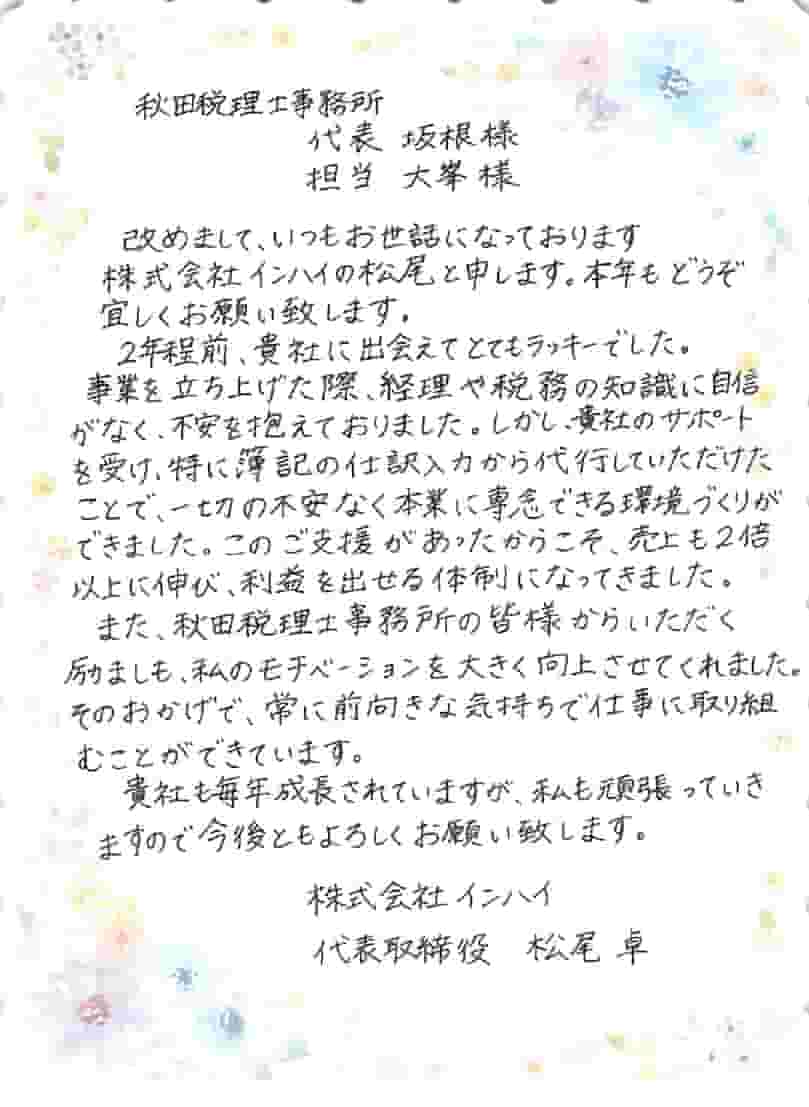 秋田税理士事務所
代表 坂根様
担当 大峯様
改めまして、いつもお世話になっております
株式会社インハイの松尾と申します。本年もどうぞ
宜しくお願い致します。
2年程前、貴社に出会えてとてもラッキーでした。
事業を立ち上げた際、経理や税務の知識に自信
がなく、不安を抱えておりました。しかし、貴社のサポート
を受け、特に簿記の仕訳入力から代行していただけた
ことで、一切の不安なく本業に専念できる環境づくりが
できました。このご支援があったからこそ、売上も2倍
以上に伸び、利益を出せる体制になってきました。
また、秋田税理士事務所の皆様からいただく
励ましも、私のモチベーションを大きく向上させてくれました。
そのおかげで、常に前向きな気持ちで仕事に取り組
むことができています。
貴社も毎年成長されていますが、私も頑張っていき
ますので今後ともよろしくお願い致します。
株式会社インハイ
代表取締役 松尾 卓